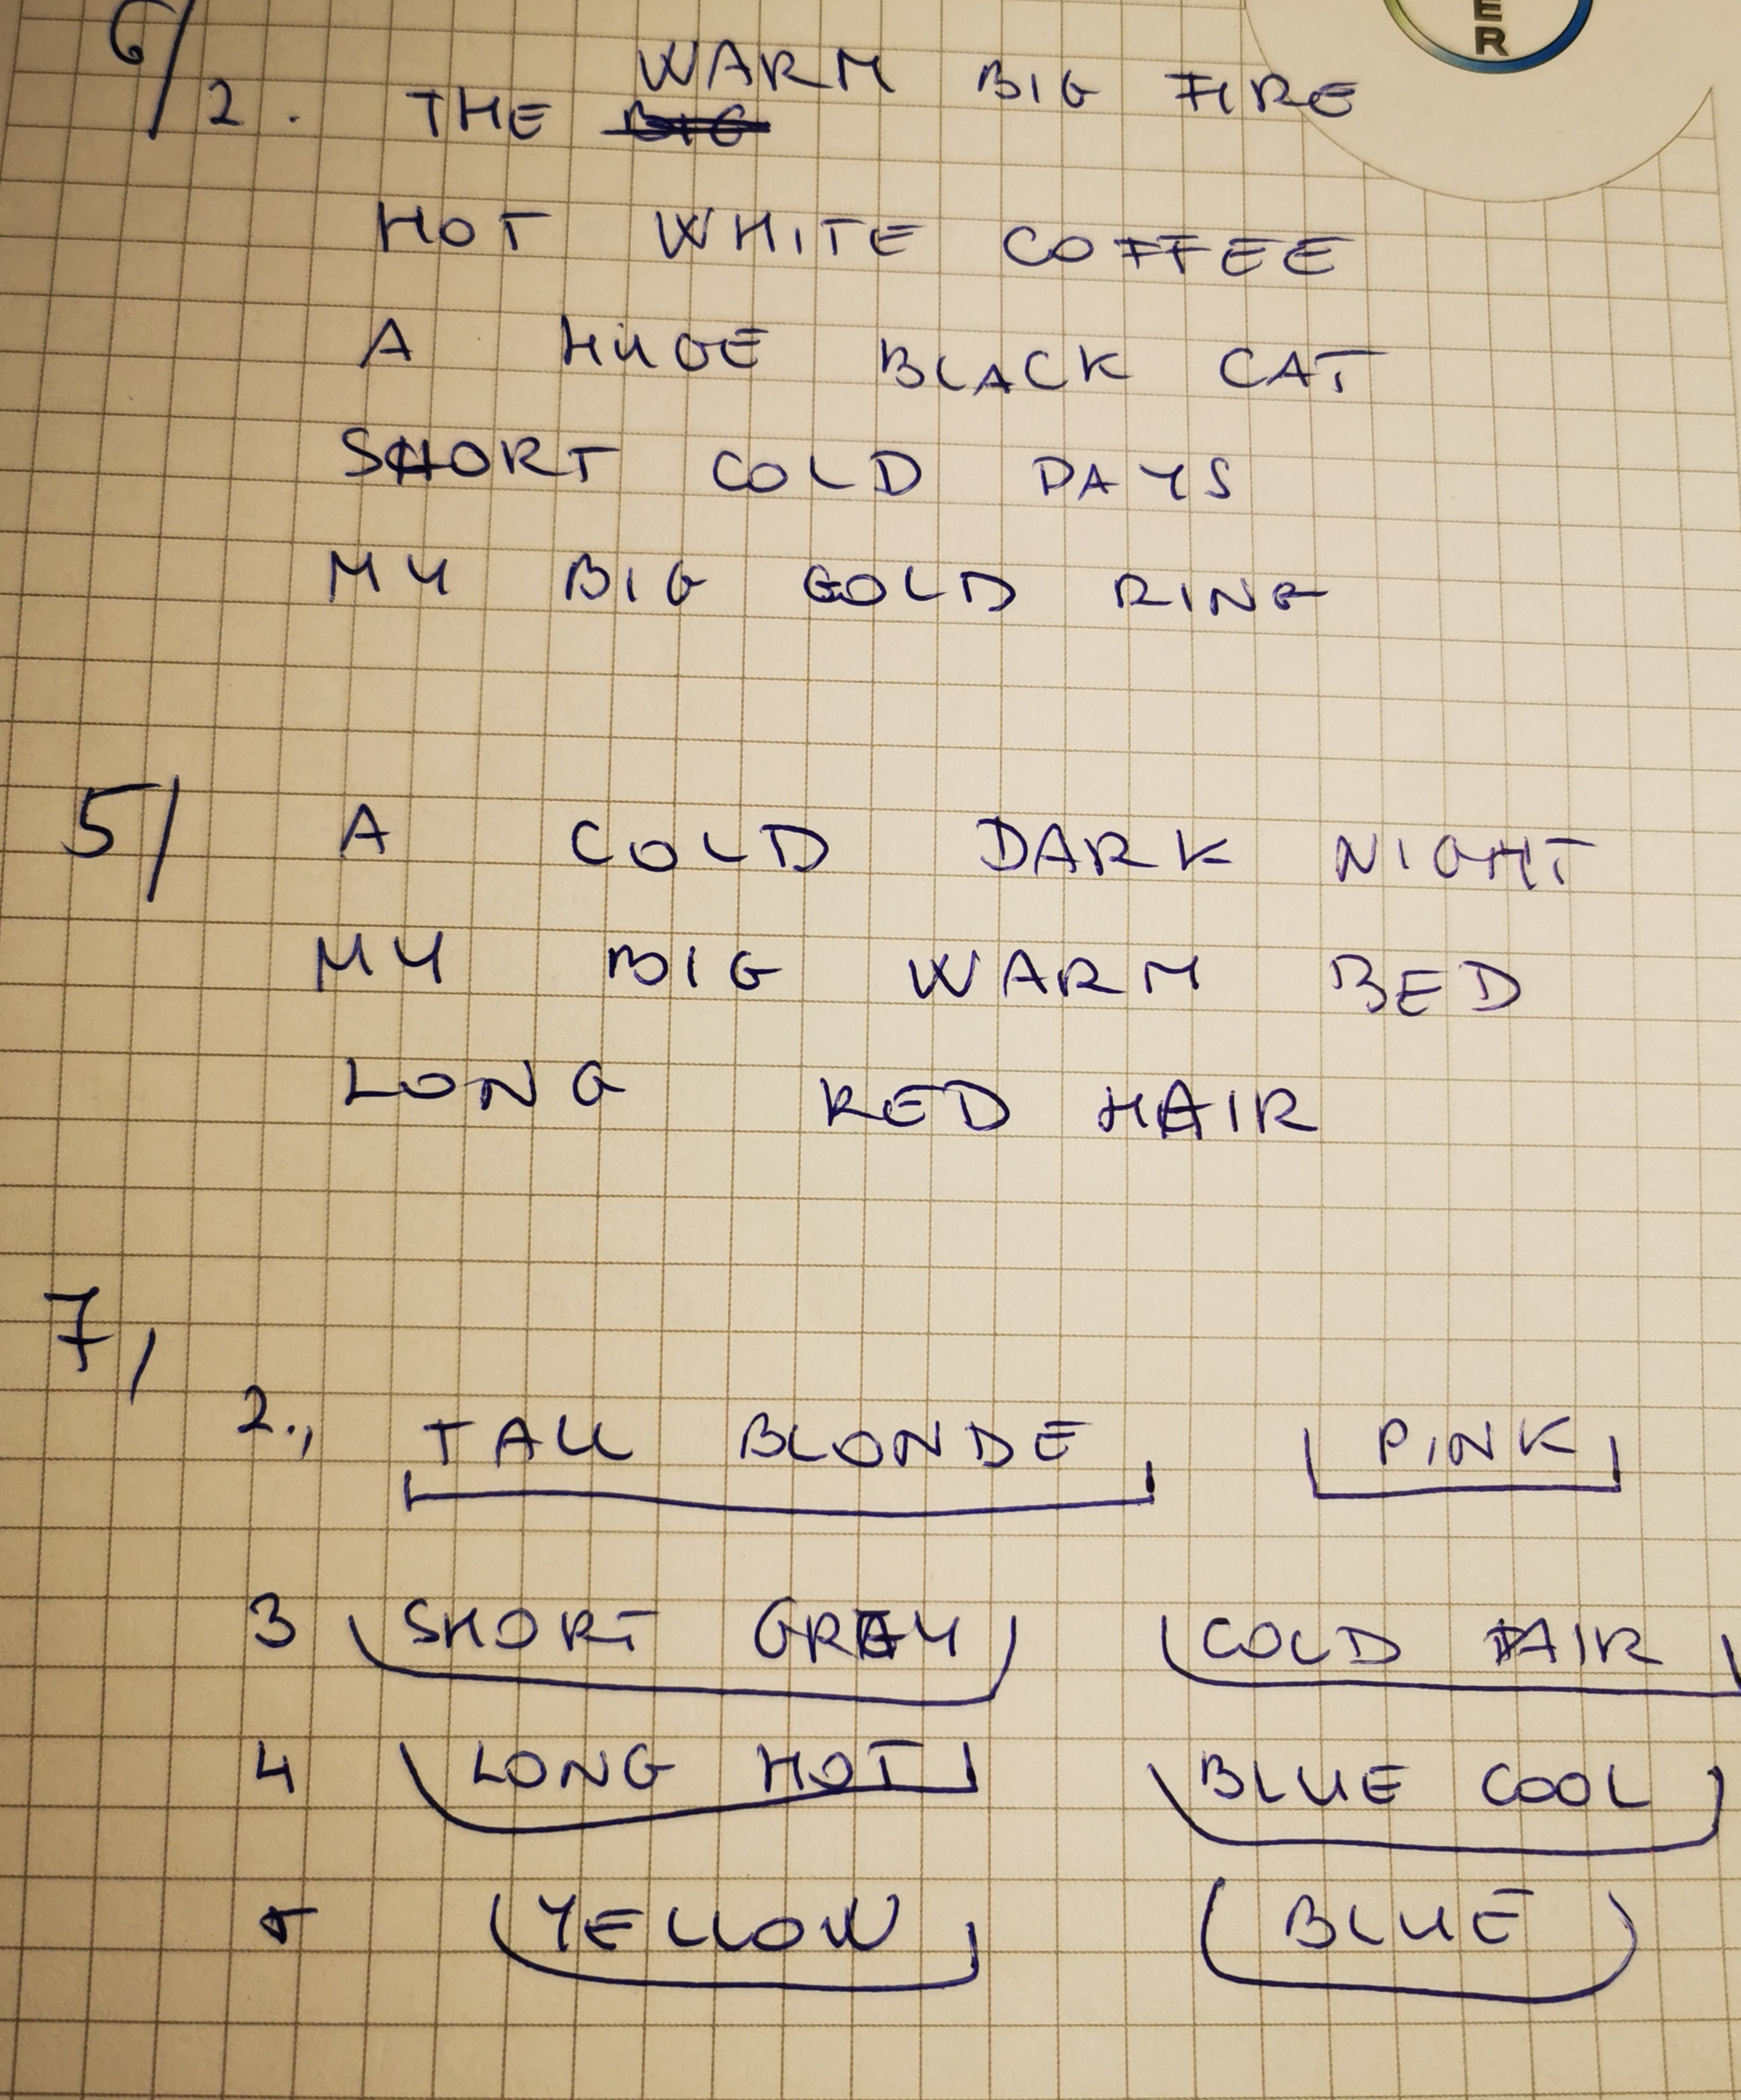 ER
6/
2. THE WARM BIG FIRE
HOT WHITE COFFEE
A HUGE BLACK CAT
SHORT COLD DAYS
MY BIG GOLD RING
5/ A COLD DARK NIGHT
MY BIG WARM BED
LONG RED HAIR
7/
2., TALL BLONDE PINK
3 SHORT GREY COLD FAIR
4 LONG HOT BLUE COOL
5 YELLOW BLUE